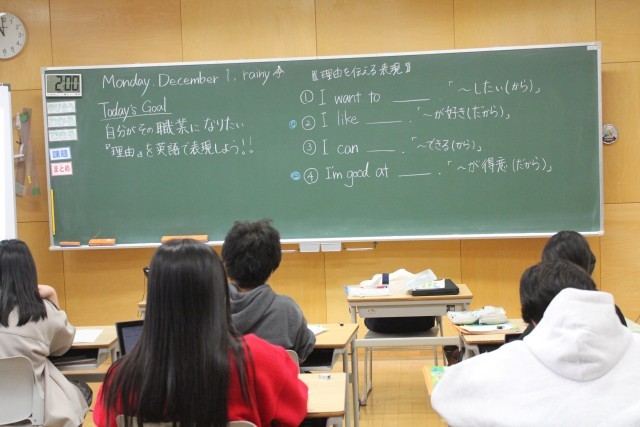 2:00
Monday. December 1. rainy
Today's Goal
自分がその職業になりたい
『理由』を英語で表現しよう!!
課題
まとめ
『理由を伝える表現』
① I want to ____ . 「~したい(から)」
② I like ____ . 「~が好き(だから)」
③ I can ____ . 「~できる(から)」
④ I'm good at ____ . 「~が得意(だから)」